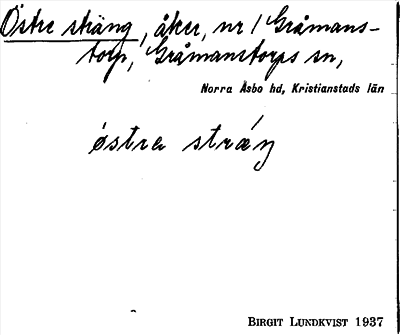 Östre sträng, åker, nr 1 Gråmans-
torp, Gråmanstorps sn,
Norra Åsbo hd, Kristianstads län
östra stráŋ
BIRGIT LUNDKVIST 1937